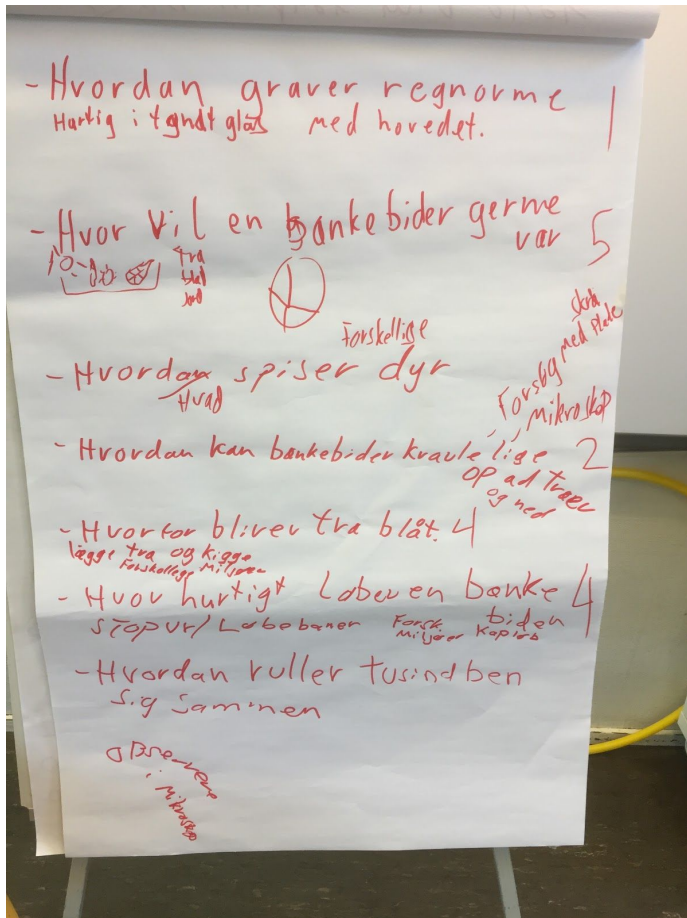 - Hvordan graver regnorme 1
Hurtig i tyndt glas med hovedet.
- Hvor vil en bænkebider germe
var 5
tra
blad
jord
Forskellige
- Hvordan spiser dyr
Hvad
skrå
med plade
Forsøg
Mikroskop
- Hvordan kan bænkebider kravle lige 2
op ad træer
og ned
- Hvorfor bliver tra blåt. 4
lægge tra og kigge
Forskellege Miljøer
- Hvor hurtigt Løber en bænke 4
biden
STOPUR/ Løbebaner Forsk.
Miljøer
- Hvordan ruller tusindben
sig sammen
OBServere
i Mikroskop